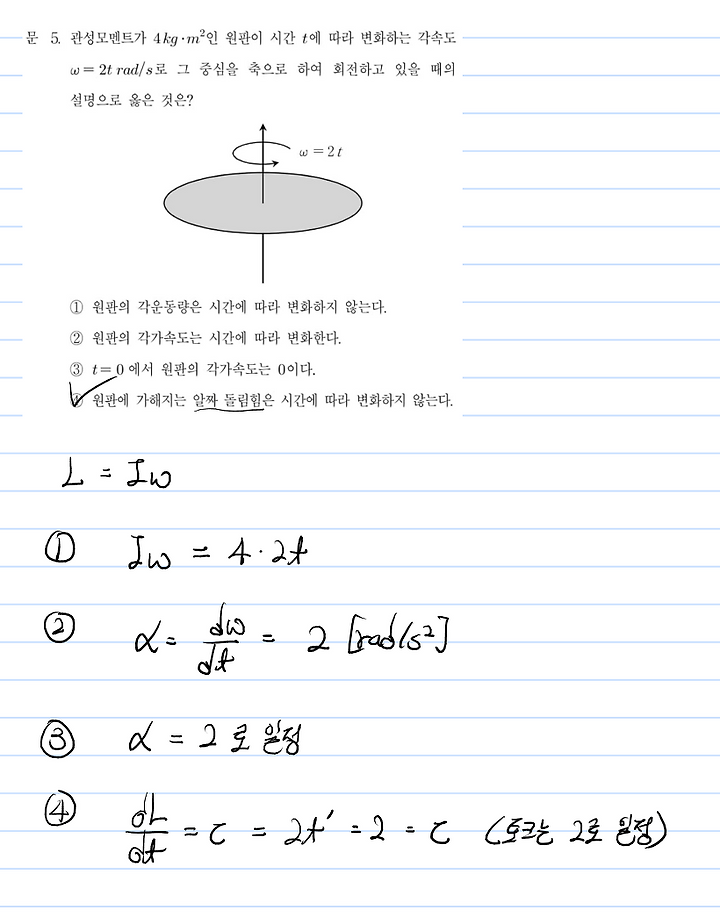 문 5. 관성모멘트가 4kg·m²인 원판이 시간 t에 따라 변화하는 각속도
ω = 2t rad/s로 그 중심을 축으로 하여 회전하고 있을 때의
설명으로 옳은 것은?
ω = 2t
① 원판의 각운동량은 시간에 따라 변화하지 않는다.
② 원판의 각가속도는 시간에 따라 변화한다.
③ t = 0에서 원판의 각가속도는 0이다.
④ 원판에 가해지는 알짜 돌림힘은 시간에 따라 변화하지 않는다.
L = Iω
① Iω = 4·2t
② α = dω/dt = 2 [rad/s²]
③ α = 2로 일정
④ dL/dt = τ = 2t' = 2 = τ (토크는 2로 일정)